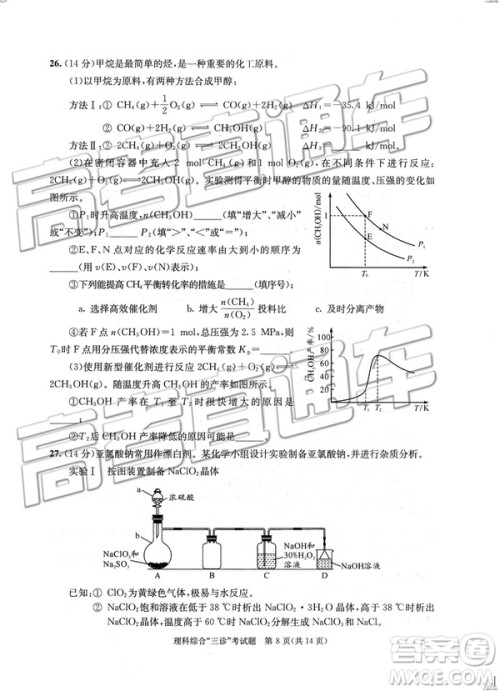 26.(14分)甲烷是最简单的烃,是一种重要的化工原料。
(1)以甲烷为原料,有两种方法合成甲醇:
方法Ⅰ:① CH₄(g)+1/2O₂(g) ⇌ CO(g)+2H₂(g) ΔH₁=-35.4 kJ/mol
② CO(g)+2H₂(g) ⇌ CH₃OH(g) ΔH₂=-90.1 kJ/mol
方法Ⅱ:③ 2CH₄(g)+O₂(g) ⇌ 2CH₃OH(g) ΔH₃=
(2)在密闭容器中充入2 mol CH₄(g)和1 mol O₂(g),在不同条件下进行反应:
2CH₄(g)+O₂(g) ⇌ 2CH₃OH(g)。实验测得平衡时甲醇的物质的量随温度、压强的变化如
图所示。
①P₁时升高温度,n(CH₃OH)______(填"增大"、"减小"
或"不变");P₁______P₂(填">"、"<"或"=")。
②E、F、N点对应的化学反应速率由大到小的顺序为
______(用v(E)、v(F)、v(N)表示)。
③下列能提高CH₄平衡转化率的措施是______(填序号)。
a. 选择高效催化剂 b. 增大n(CH₄)/n(O₂)投料比 c. 及时分离产物
④若F点n(CH₃OH)=1 mol,总压强为2.5 MPa,则
T₀时用分压强代替浓度表示的平衡常数Kp=______
(3)使用新型催化剂进行反应2CH₄(g)+O₂(g) ⇌
2CH₃OH(g)。随温度升高CH₃OH的产率如图所示。
①CH₃OH的产率在T₁至T₂时很快增大的原因是
②T₂后CH₃OH产率降低的原因可能是
n(CH₃OH)/mol
1
F
N
E
P₁
P₂
T₀
T/K
CH₃OH产率/%
100
80
60
40
20
0
T₁ T₂ T/K
27.(14分)亚氯酸钠常用作漂白剂。某化学小组设计实验制备亚氯酸钠,并进行杂质分析。
实验Ⅰ 按图装置制备NaClO₂晶体
浓硫酸
NaClO₃
和
Na₂SO₃
NaOH
和
30%H₂O₂
溶液
NaOH溶液
A B C D
已知:①ClO₂为黄绿色气体,极易与水反应。
②NaClO₂饱和溶液在低于38 ℃时析出NaClO₂·3H₂O晶体,高于38 ℃时析出
NaClO₂晶体,温度高于60 ℃时NaClO₂分解生成NaClO₃和NaCl。
理科综合"三诊"考试题 第8页(共14页)
高考直通车
高考直通车